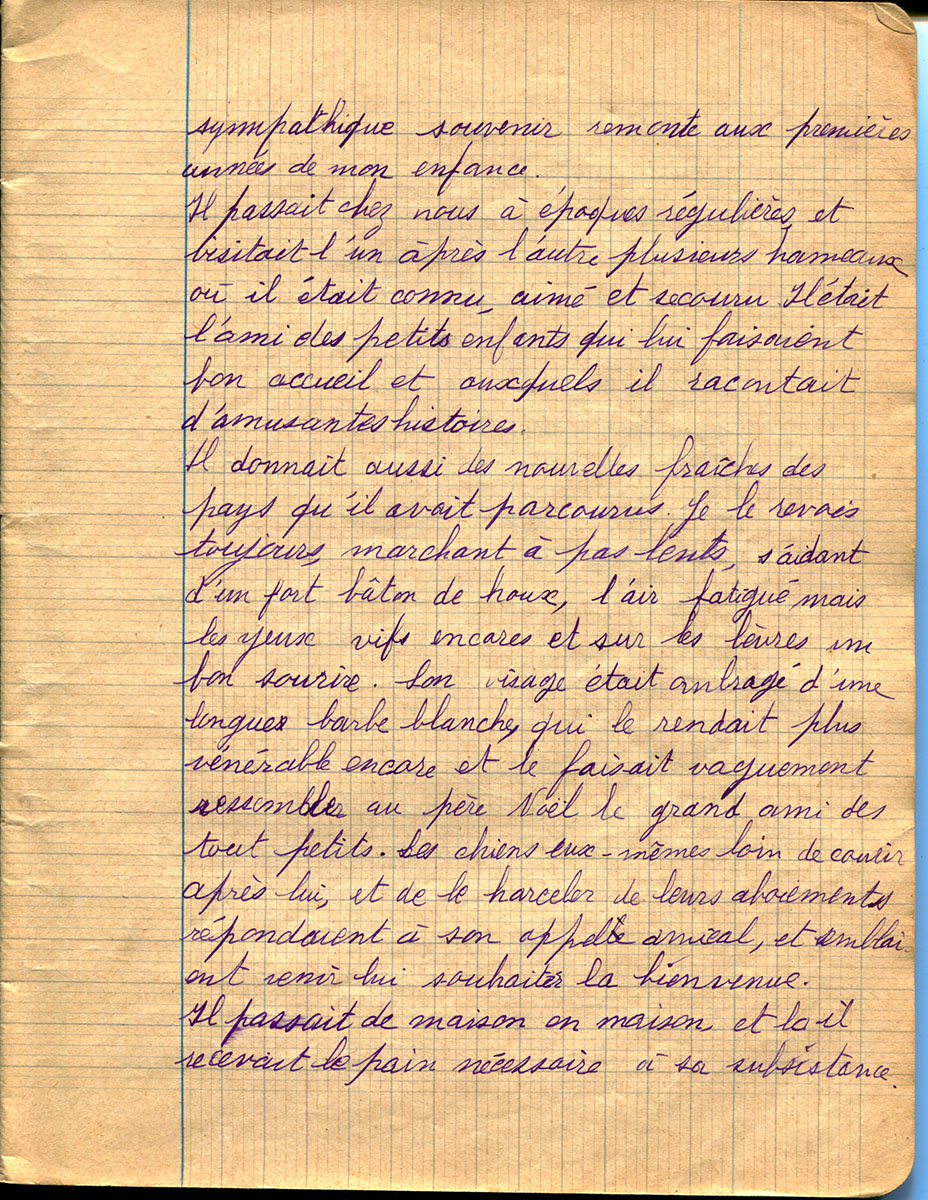 sympathique souvenir remonte aux premières
années de mon enfance.
Il passait chez nous à époques régulières, et
visitait l'un àprès l'autre plusieurs hameaux
où il était connu, aimé et secouru. Il était
l'ami des petits enfants qui lui faisaient
bon accueil et auxquels il racontait
d'amusantes histoires.
Il donnait aussi les nouvelles fraîches des
pays qu'il avait parcourus. Je le revois
toujours, marchant à pas lents, s'aidant
d'un fort bâton de houx, l'air fatigué mais
les yeux vifs encores et sur les lèvres un
bon sourire. Son visage était ombragé d'une
longue barbe blanche, qui le rendait plus
vénérable encore et le faisait vaguement
ressembler au père Noël le grand ami des
tout petits. Les chiens eux-mêmes loin de courir
après lui, et de le harceler de leurs aboiements
répondaient à son appel amical, et semblai-
ent venir lui souhaiter la bienvenue.
Il passait de maison en maison, et la il
recevait le pain nécessaire à sa subsistance.